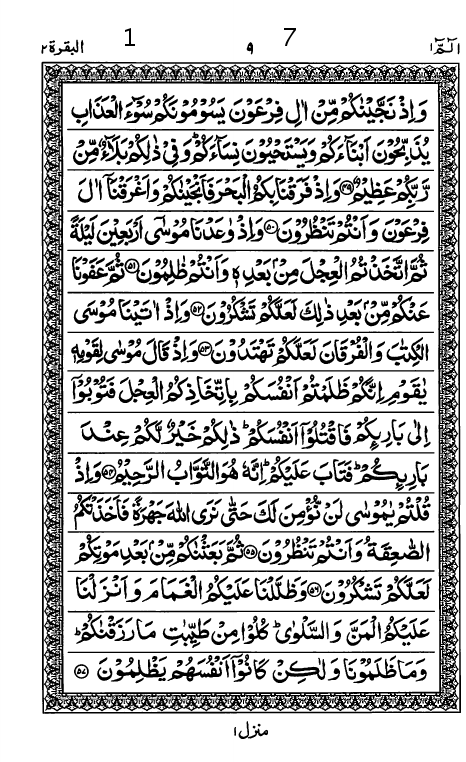 الٓمّٓ ١ ٧ ٩ 1 البقرة ٢
وَ اِذْ نَجَّیْنٰكُمْ مِّنْ اٰلِ فِرْعَوْنَ یَسُوْمُوْنَكُمْ سُوْٓءَ الْعَذَابِ
یُذَبِّحُوْنَ اَبْنَآءَكُمْ وَ یَسْتَحْیُوْنَ نِسَآءَكُمْؕ وَ فِیْ ذٰلِكُمْ بَلَآءٌ مِّنْ
رَّبِّكُمْ عَظِیْمٌ۝۴۹ وَ اِذْ فَرَقْنَا بِكُمُ الْبَحْرَ فَاَنْجَیْنٰكُمْ وَ اَغْرَقْنَاۤ اٰلَ
فِرْعَوْنَ وَ اَنْتُمْ تَنْظُرُوْنَ۝۵۰ وَ اِذْ وٰعَدْنَا مُوْسٰۤى اَرْبَعِیْنَ لَیْلَةً
ثُمَّ اتَّخَذْتُمُ الْعِجْلَ مِنْۢ بَعْدِهٖ وَ اَنْتُمْ ظٰلِمُوْنَ۝۵۱ ثُمَّ عَفَوْنَا
عَنْكُمْ مِّنْۢ بَعْدِ ذٰلِكَ لَعَلَّكُمْ تَشْكُرُوْنَ۝۵۲ وَ اِذْ اٰتَیْنَا مُوْسَى
الْكِتٰبَ وَ الْفُرْقَانَ لَعَلَّكُمْ تَهْتَدُوْنَ۝۵۳ وَ اِذْ قَالَ مُوْسٰى لِقَوْمِهٖ
یٰقَوْمِ اِنَّكُمْ ظَلَمْتُمْ اَنْفُسَكُمْ بِاتِّخَاذِكُمُ الْعِجْلَ فَتُوْبُوْۤا
اِلٰى بَارِىِٕكُمْ فَاقْتُلُوْۤا اَنْفُسَكُمْؕ ذٰلِكُمْ خَیْرٌ لَّكُمْ عِنْدَ
بَارِىِٕكُمْؕ فَتَابَ عَلَیْكُمْؕ اِنَّهٗ هُوَ التَّوَّابُ الرَّحِیْمُ۝۵۴ وَ اِذْ
قُلْتُمْ یٰمُوْسٰى لَنْ نُّؤْمِنَ لَكَ حَتّٰى نَرَى اللّٰهَ جَهْرَةً فَاَخَذَتْكُمُ
الصّٰعِقَةُ وَ اَنْتُمْ تَنْظُرُوْنَ۝۵۵ ثُمَّ بَعَثْنٰكُمْ مِّنْۢ بَعْدِ مَوْتِكُمْ
لَعَلَّكُمْ تَشْكُرُوْنَ۝۵۶ وَ ظَلَّلْنَا عَلَیْكُمُ الْغَمَامَ وَ اَنْزَلْنَا
عَلَیْكُمُ الْمَنَّ وَ السَّلْوٰىؕ كُلُوْا مِنْ طَیِّبٰتِ مَا رَزَقْنٰكُمْؕ
وَ مَا ظَلَمُوْنَا وَ لٰكِنْ كَانُوْۤا اَنْفُسَهُمْ یَظْلِمُوْنَ۝۵۷
منزل ۱